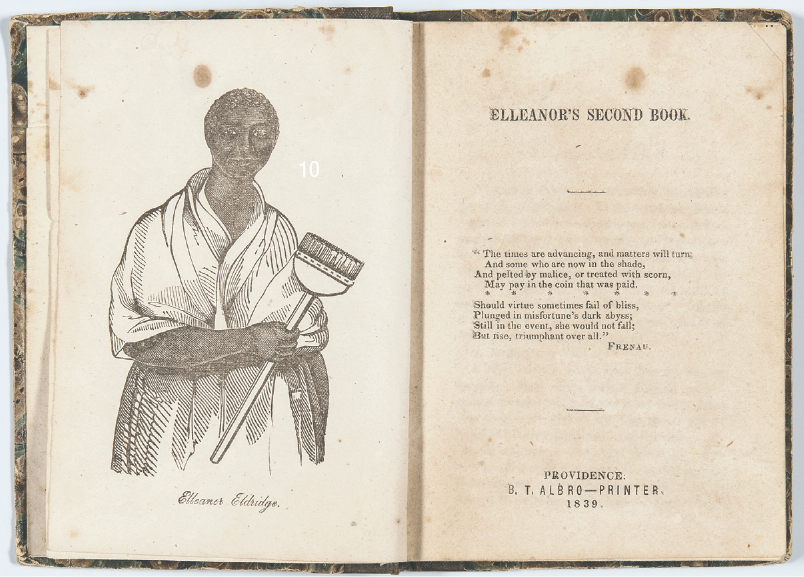 10
Elleanor Eldridge.
ELLEANOR'S SECOND BOOK.
“ The times are advancing, and matters will turn;
And some who are now in the shade,
And pelted by malice, or treated with scorn,
May pay in the coin that was paid.
* * * * * * *
Should virtue sometimes fail of bliss,
Plunged in misfortune's dark abyss;
Still in the event, she would not fall;
But rise, triumphant over all.”
FRENAU.
PROVIDENCE:
B. T. ALBRO—PRINTER.
1839.